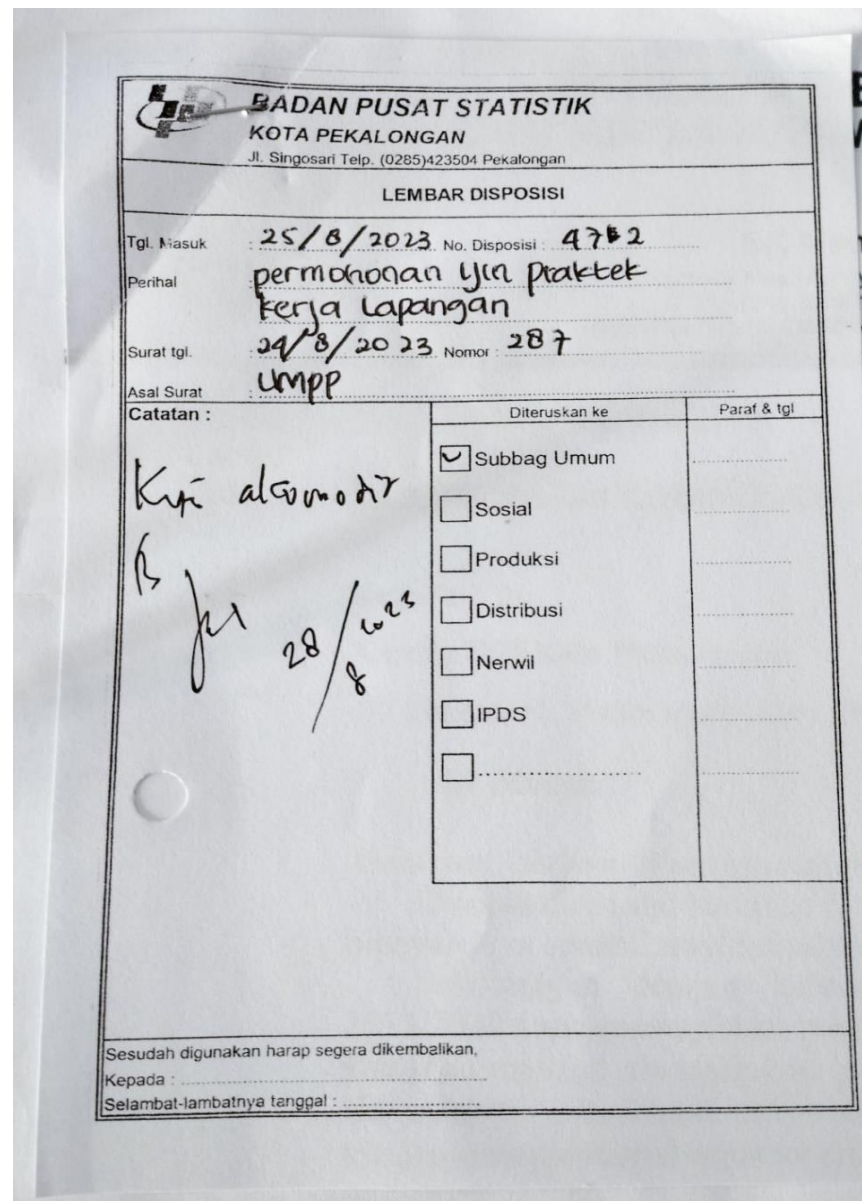 BADAN PUSAT STATISTIK
KOTA PEKALONGAN
Jl. Singosari Telp. (0285)423504 Pekalongan
LEMBAR DISPOSISI
Tgl. Masuk : 25/8/2023 No. Disposisi : 4762
Perihal : permohonan ijin praktek
kerja Lapangan
Surat tgl. : 24/8/2023 Nomor : 287
Asal Surat : UMPP
Catatan :
akomodir
28/8 2023
Diteruskan ke
Paraf & tgl
Subbag Umum
Sosial
Produksi
Distribusi
Nerwil
IPDS
Sesudah digunakan harap segera dikembalikan,
Kepada :
Selambat-lambatnya tanggal :